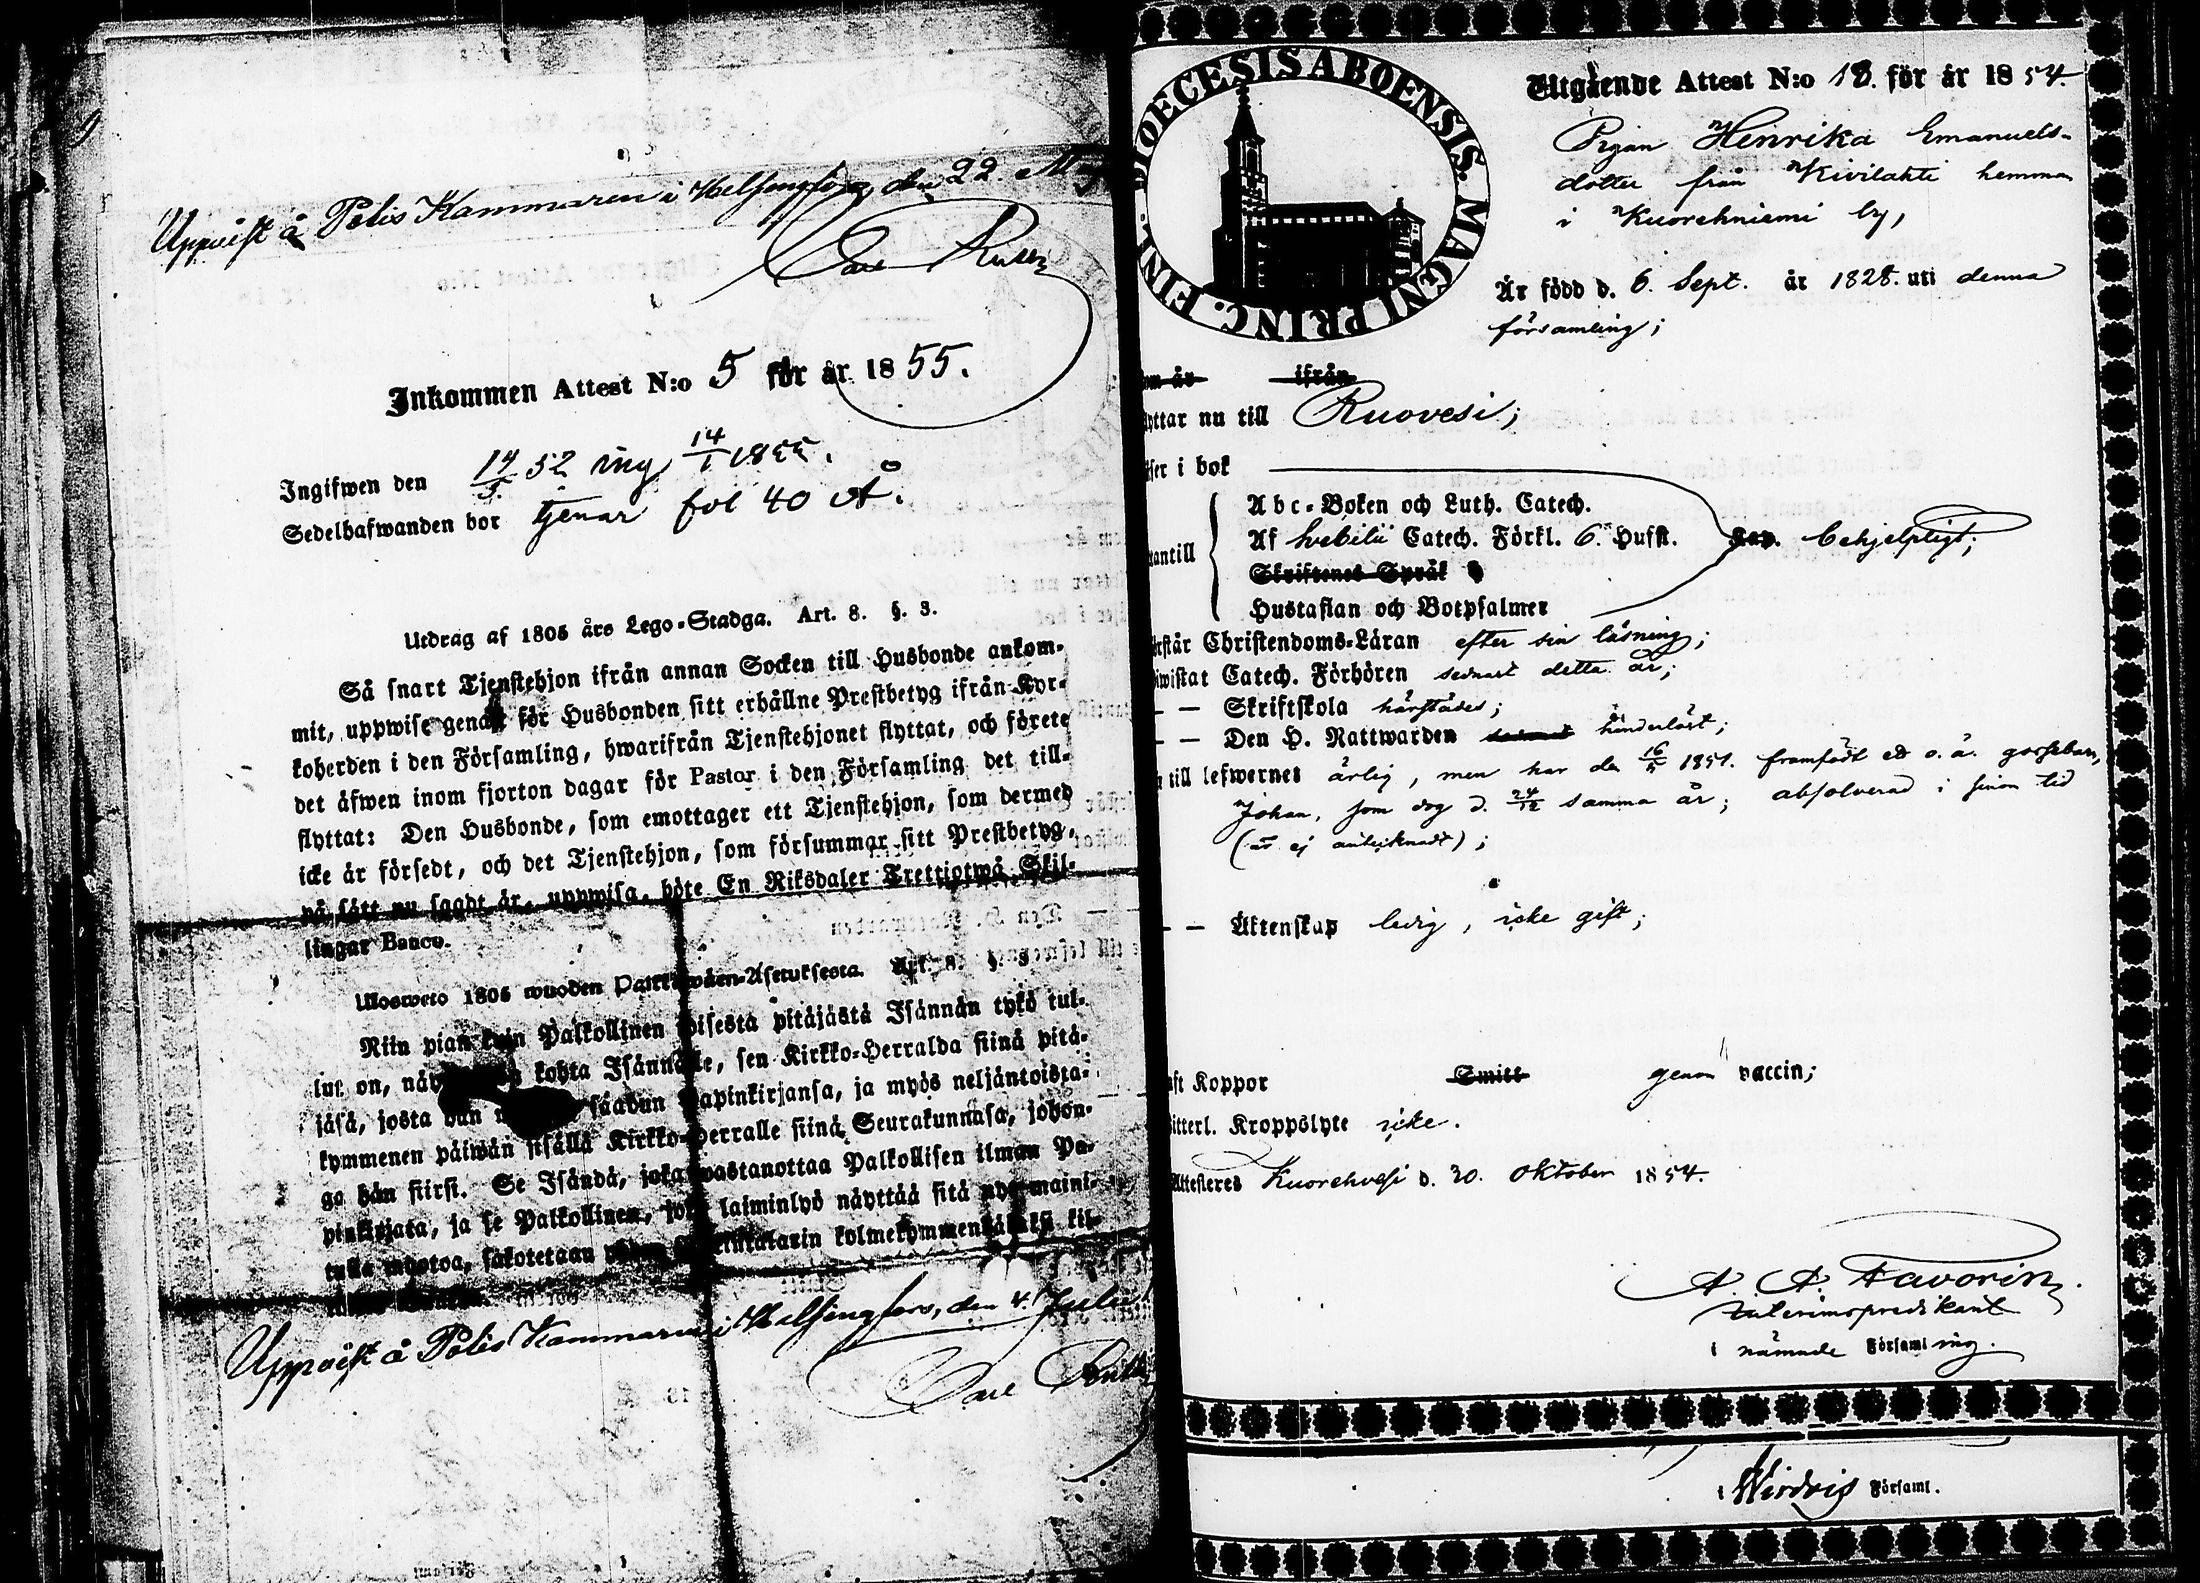 Uppvist å Polis Kammaren i Helsingfors, den 22.
Carl
Inkommen Attest N:o 5 för år 1855.
Ingifwen den 14/5. 52 ing 14/1 1855.
Sedelhafwanden bor tjenar fol 40 Å.
Utdrag af 1805 års Lego-Stadga. Art. 8. §. 3.
Så snart Tjenstehjon ifrån annan Socken till Husbonde ankom-
mit, uppwise genast för Husbonden sitt erhållne Prestbetyg ifrån Kyr-
koherden i den Församling, hwarifrån Tjenstehjonet flyttat, och förete
det äfwen inom fjorton dagar för Pastor i den Församling det till-
flyttat: Den Husbonde, som emottager ett Tjenstehjon, som dermed
icke är försedt, och det Tjenstehjon, som försummar sitt Prestbetyg,
på sätt nu sagdt är, uppwisa, böte En Riksdaler Trettiotwå Skil-
lingar Banco.
Ulosweto 1805 wuoden Asetuksesta. Art. 8. §. 3
Niin pian kuin Palkollinen toisesta pitäjästä Isännän tykö tul-
lut on, kohta Isännälle, sen Kirkko-Herralda siinä pitä-
jäsä, josta hän saadun Papinkirjansa, ja myös neljäntoista-
kymmenen päiwän sisällä Kirkko-Herralle siinä Seurakunnasa, johon-
ga hän siirsi. Se Isändä, joka wastanottaa Palkollisen ilman Pa-
pinkirjata, ja se Palkollinen, joka laiminlyö näyttää sitä nyt maini-
tulla muotoa, sakotetaan kolmekymmentäkaksi kil-
Uppvist å Polis Kammaren i Helsingfors, den 4. Julii
Carl
FINL. DIOECESIS ABOENSIS. MAGNI PRINC.
Utgående Attest N:o 18. för år 1854.
Pigan Henrika Emanuels-
dotter från Kivilahti hemman
i Kuorehniemi by,
Är född d. 6. Sept. år 1828. uti denna
församling;
om år ifrån
yttar nu till Ruovesi;
äser i bok
Abc-Boken och Luth. Catech.
utantill Af Svebilii Catech. Förkl. 6. Hufst. behjelpligt;
Skriftenes Språk
Hustaflan och Botpsalmer
rstår Christendoms-Läran efter sin läsning;
iwistat Catech. Förhören sednast detta år;
— — Skriftskola härstädes;
— — Den H. Nattwarden sednast hinderlöst;
n till lefwernet ärlig, men har den 16/5 1851. framfödt ett o.ä. gossebarn,
Johan, som dog d. 24/12 samma år; absolverad i sinom tid
(är ej antecknadt);
— — Äktenskap ledig, icke gift;
aft Koppor Smitt genom vaccin;
itterl. Kroppslyte icke.
Attesteres Kuorehvesi d. 30. Oktober 1854.
A. A. Favorin.
Interimspredikant
i nämnde Församling.
i Wirdois Församl.